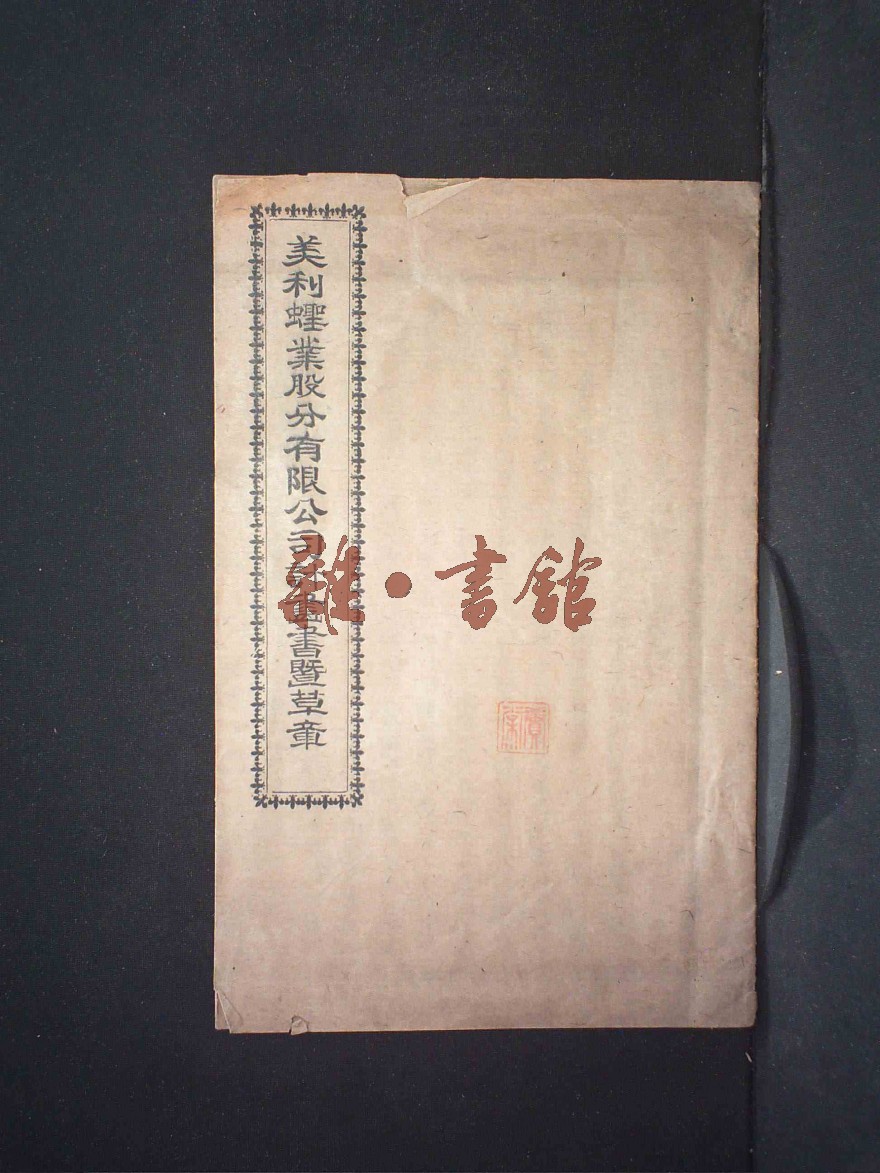 美利蟶業股分有限公司計畫書暨草章
雜·書館